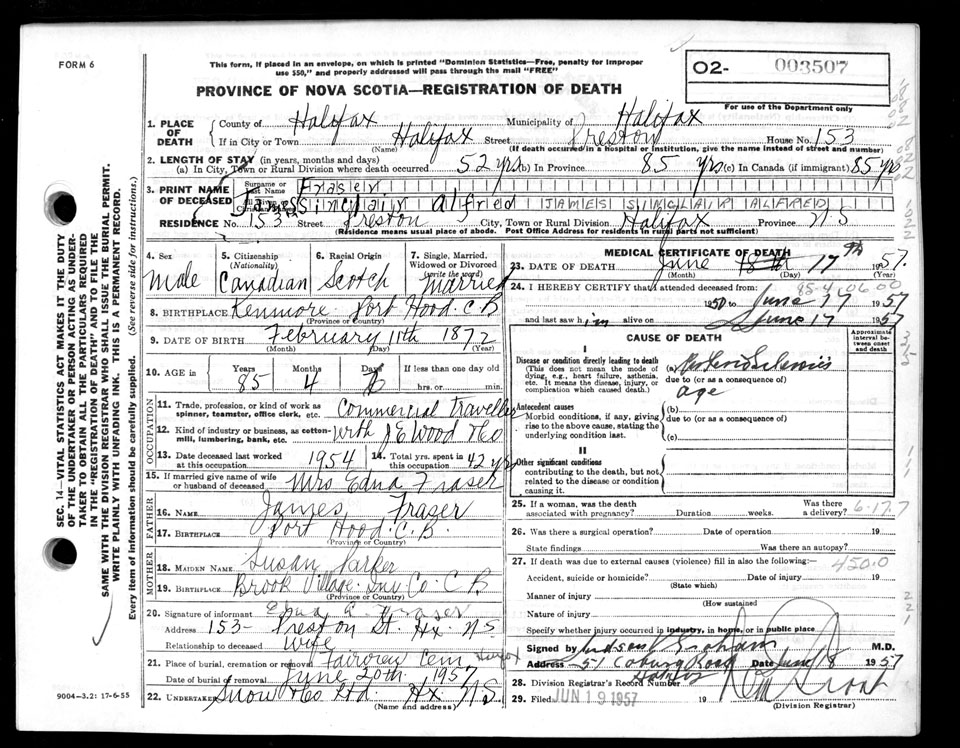 FORM 6
This form, if placed in an envelope, on which is printed "Dominion Statistics—Free, penalty for improper
use $50," and properly addressed will pass through the mail "FREE"
02- 003507
For use of the Department only
PROVINCE OF NOVA SCOTIA—REGISTRATION OF DEATH
1. PLACE OF DEATH
County of Halifax Municipality of Halifax
If in City or Town Halifax Street Preston House No. 153
(Name) (If death occurred in a hospital or institution, give the name instead of street and number)
2. LENGTH OF STAY (in years, months and days)
(a) In City, Town or Rural Division where death occurred 52 yrs (b) In Province 85 yrs (c) In Canada (if immigrant) 85 yrs
3. PRINT NAME OF DECEASED
Surname or Last Name Fraser
James Sinclair Alfred JAMES SINCLAIR ALFRED
RESIDENCE No. 153 Street Preston City, Town or Rural Division Halifax Province N S
(Residence means usual place of abode. Post Office Address for residents in rural parts not sufficient)
4. Sex
Male
5. Citizenship (Nationality)
Canadian
6. Racial Origin
Scotch
7. Single, Married, Widowed or Divorced (write the word)
Married
8. BIRTHPLACE Kenmore Port Hood. C B
(Province or Country)
9. DATE OF BIRTH February 11th 1872
(Month) (Day) (Year)
10. AGE
Years 85 Months 4 Days 6
If less than one day old
hrs. or min.
OCCUPATION
11. Trade, profession, or kind of work as spinner, teamster, office clerk, etc. Commercial traveller
12. Kind of industry or business, as cotton-mill, lumbering, bank, etc. with J E Wood & Co
13. Date deceased last worked at this occupation 1954
14. Total yrs. spent in this occupation 42 yrs
15. If married give name of wife or husband of deceased Mrs Edna Fraser
FATHER
16. NAME James Fraser
17. BIRTHPLACE Port Hood. C. B.
(Province or Country)
MOTHER
18. MAIDEN NAME Susan Parker
19. BIRTHPLACE Brook Village Inv. Co. C B
(Province or Country)
20. Signature of informant Edna Fraser
Address 153- Preston St. Hx. N S
Relationship to deceased Wife
21. Place of burial, cremation or removal Fairview Cem Halifax
Date of burial or removal June 20th 1957
22. UNDERTAKER Snow & Co Ltd. Hx. N. S.
(Name and address)
MEDICAL CERTIFICATE OF DEATH
23. DATE OF DEATH June 17th 1957.
(Month) (Day) (Year)
24. I HEREBY CERTIFY that I attended deceased from:
1950 to June 17 1957
and last saw him alive on June 17 1957
CAUSE OF DEATH
Approximate interval between onset and death
I
Disease or condition directly leading to death
(This does not mean the mode of dying, e.g., heart failure, asthenia, etc. It means the disease, injury, or complication which caused death.)
(a) Arteriosclerosis
due to (or as a consequence of)
age
Antecedent causes
Morbid conditions, if any, giving rise to the above cause, stating the underlying condition last.
(b)
due to (or as a consequence of)
(c)
II
Other significant conditions
contributing to the death, but not related to the disease or condition causing it.
25. If a woman, was the death associated with pregnancy? Duration weeks. Was there a delivery?
6.17.7
26. Was there a surgical operation? Date of operation 19
State findings Was there an autopsy?
27. If death was due to external causes (violence) fill in also the following:—
450.0
Accident, suicide or homicide? Date of injury 19
(State which)
Manner of injury
(How sustained)
Nature of injury
Specify whether injury occurred in industry, in home, or in public place
Signed by Judson Graham M.D.
Address 51 Coburg Road Date June 18 1957
Halifax
28. Division Registrar's Record Number
29. Filed JUN 19 1957 19
(Division Registrar)
9004—3.2: 17-6-55
SEC. 14—VITAL STATISTICS ACT MAKES IT THE DUTY
OF THE UNDERTAKER OR PERSON ACTING AS UNDER-
TAKER TO OBTAIN ALL THE PARTICULARS REQUIRED
IN THE "REGISTRATION OF DEATH" AND TO FILE THE
SAME WITH THE DIVISION REGISTRAR WHO SHALL ISSUE THE BURIAL PERMIT.
WRITE PLAINLY WITH UNFADING INK. THIS IS A PERMANENT RECORD.
Every item of information should be carefully supplied. (See reverse side for instructions.)